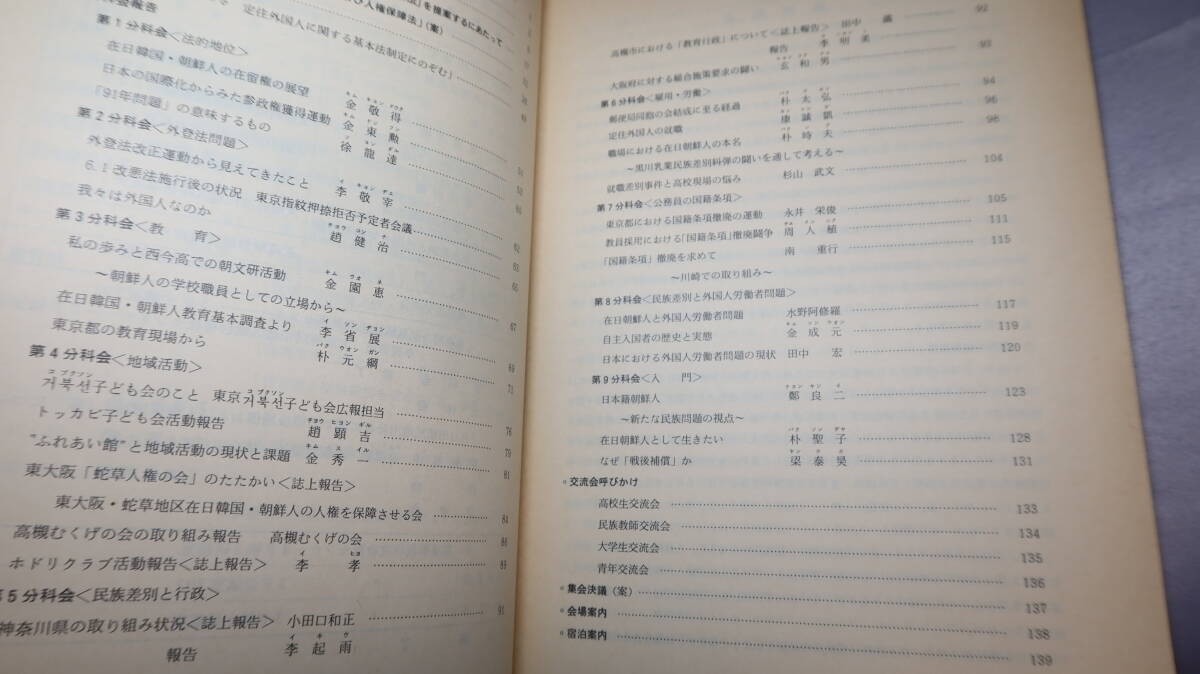 び人権保障法」(案)
を提案するにあたって
定住外国人に関する基本法制定にのぞむ」
会報告
第1分科会＜法的地位＞
在日韓国・朝鮮人の在留権の展望 金敬得
日本の国際化からみた参政権獲得運動 金東勲
「91年問題」の意味するもの 徐龍達
第2分科会＜外登法問題＞
外登法改正運動から見えてきたこと 李敬宰
6.1改悪法施行後の状況 東京指紋押捺拒否予定者会議
我々は外国人なのか 趙健治 62
第3分科会＜教 育＞
私の歩みと西今高での朝文研活動 金園恵 65
〜朝鮮人の学校職員としての立場から〜
在日韓国・朝鮮人教育基本調査より 李省展 67
東京都の教育現場から 朴元綱 69
第4分科会＜地域活動＞
거북선子ども会のこと 東京거북선子ども会広報担当 73
トッカビ子ども会活動報告 趙顕吉 76
"ふれあい館"と地域活動の現状と課題 金秀一 79
東大阪「蛇草人権の会」のたたかい＜誌上報告＞ 81
東大阪・蛇草地区在日韓国・朝鮮人の人権を保障させる会 84
高槻むくげの会の取り組み報告 高槻むくげの会
ホドリクラブ活動報告＜誌上報告＞ 李孝 89
5分科会＜民族差別と行政＞
神奈川県の取り組み状況＜誌上報告＞ 小田口和正 91
報告 李起雨
高槻市における「教育行政」について＜誌上報告＞ 田中 92
報告 李明美
大阪府に対する総合施策要求の闘い 玄和男 93
第6分科会＜雇用・労働＞
郵便局同胞の会結成に至る経過 朴太弘 94
定住外国人の就職 康誠凱 96
職場における在日朝鮮人の本名 朴時夫 98
〜黒川乳業民族差別糾弾の闘いを通して考える〜
就職差別事件と高校現場の悩み 杉山武文 104
第7分科会＜公務員の国籍条項＞
東京都における国籍条項撤廃の運動 永井栄俊 105
教員採用における「国籍条項」撤廃闘争 周人植 111
「国籍条項」撤廃を求めて 南重行 115
〜川崎での取り組み〜
第8分科会＜民族差別と外国人労働者問題＞
在日朝鮮人と外国人労働者問題 水野阿修羅 117
自主入国者の歴史と実態 金成元 119
日本における外国人労働者問題の現状 田中宏 120
第9分科会＜入 門＞
日本籍朝鮮人 鄭良二 123
〜新たな民族問題の視点〜
在日朝鮮人として生きたい 朴聖子 128
なぜ「戦後補償」か 梁泰昊 131
◦交流会呼びかけ
高校生交流会 133
民族教師交流会 134
大学生交流会 135
青年交流会 136
◦集会決議（案） 137
◦会場案内 138
◦宿泊案内 139